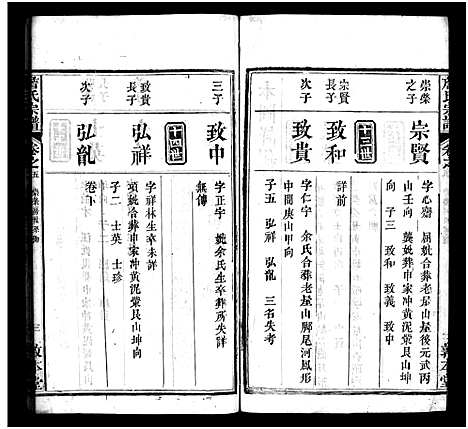 崇榮之子
宗賢
字心齋 屈妣合葬老屋山後元武丙
山壬向 龔妣葬申家冲黃泥壠艮山坤
向 子三 致和 致義 致中
十三世
宗賢長子
致和
詳前
次子
致貴
字仁宇 余氏合葬老屋山腳尾河鳳形
中間庚山甲向
子五 弘祥 弘龍 三名失考
三子
致中
字正宇 妣余氏生卒葬所失詳
無傳
十四世
致貴長子
弘祥
字祥林生卒未詳
項妣合葬申家冲黃泥壠艮山坤向
子二 士英 士珍
次子
弘龍
卷下
詹氏宗譜
卷之五
三
敦本堂